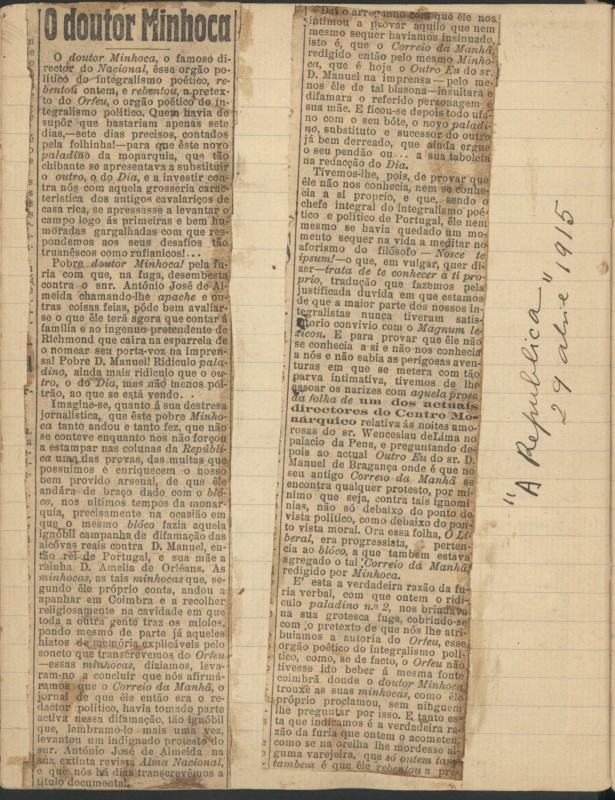 O doutor Minhoca
O doutor Minhoca, o famoso di-
rector do Nacional, êsse orgão po-
litico do integralismo poético, re-
bentou ontem, e rebentou, a pretex-
to do Orfeu, o orgão poético do in-
tegralismo politico. Quem havia de
supôr que bastariam apenas sete
dias,—sete dias precisos, contados
pela folhinha!—para que êste novo
paladino da monarquia, que tão
chibante se apresentava a substituir
o outro, o do Dia, e a investir con-
tra nós com aquela grosseria carac-
teristica dos antigos cavalariços de
casa rica, se apressasse a levantar o
campo logo ás primeiras e bem hu-
móradas gargalhadas com que res-
pondemos aos seus desafios tão
truanêscos como rufianicos!...
Pobre doutor Minhoca! pela fu-
ria com que, na fuga, desembesta
contra o snr. António José de Al-
meida chamando-lhe apache e ou-
tras coisas feias, póde bem avaliar-
se o que êle terá agora que contar á
familia e ao ingenuo pretendente de
Richmond que caíra na esparrela de
o nomear seu porta-voz na impren-
sa! Pobre D. Manuel! Ridiculo pala-
dino, ainda mais ridiculo que o ou-
tro, o do Dia, mas não menos pol-
trão, no que se está vendo. .
Imagine-se, quanto á sua destresa
jornalistica, que êste pobre Minho-
ca tanto andou e tanto fez, que não
se conteve enquanto nos não forçou
a estampar nas colunas da Repúbli-
ca uma das provas, das muitas que
possuimos e enriquecem o nosso
bem provido arsenal, de que êle
andára de braço dado com o bló-
co, nos ultimos tempos da monar-
quia, precisamente na ocasião em
que o mesmo blóco fazia aquela
ignóbil campanha de difamação das
alcôvas reais contra D. Manuel, en-
tão rei de Portugal, e sua mãe a
rainha D. Amelia de Orléans. As
minhocas, as tais minhocas que, se-
gundo êle próprio conta, andou a
apanhar em Coimbra e a recolher
religiosamente na cavidade em que
toda a outra gente traz os miolos,
pondo mesmo de parte já aqueles
hiatos de memória explicáveis pelo
soneto que transcrevemos do Orfeu
—essas minhocas, diziamos, leva-
ram-no a concluir que nós afirmá-
ramos que o Correio da Manhã, o
jornal de que êle então era o re-
dactor politico, havia tomado parte
activa nessa difamação, tão ignóbil
que, lembrano-lo mais uma vez,
levantou um indignado protesto do
snr. António José de Almeida na
sua extinta revista Alma Nacional,
e que nós há dias transcrevêmos a
titulo documental.
Daí o arreganho com que êle nos
intimou a provar aquilo que nem
mesmo sequer haviamos insinuado,
isto é, que o Correio da Manhã,
redigido então pelo mesmo Minho-
ca, que é hoje o Outro Eu do sr.
D. Manuel na imprensa—pelo me-
nos êle de tal blasona—insultara e
difamara o referido personagem e
sua mãe. E ficou-se depois todo ufa-
no com o seu bôte, o novo paladi-
no, substituto e sucessor do outro
já bem derreado, que ainda ergue
o seu pendão ou... a sua taboleta
na redacção do Dia.
Tivemos-lhe, pois, de provar que
êle não nos conhecia, nem se conhe-
cia a si proprio, e que, sendo o
chefe integral do integralismo poé-
tico e politico de Portugal, êle nem
mesmo se havia quedado um mo-
mento sequer na vida a meditar no
aforismo do filósofo — Nosce te
ipsum!—o que, em vulgar, quer di-
zer—trata de te conhecer a ti pró-
prio, tradução que fazemos pela
justificada duvida em que estamos
de que a maior parte dos nossos in-
tegralistas nunca tiveram satis-
torio convivio com o Magnum le-
xicon. E para provar que êle não
se conhecia a si e não nos conhecia
a nós e não sabia as perigosas aven-
turas em que se metera com tão
parva intimativa, tivemos de lhe
assoar os narizes com aquela prosa
da folha de um dos actuais
directores do Centro Mo-
nárquico relativa ás noites amo-
rosas do sr. Wenceslau de Lima no
palacio da Pena, e preguntando de-
pois ao actual Outro Eu do sr. D.
Manuel de Bragança onde é que no
seu antigo Correio da Manhã se
encontra qualquer protesto, por mi-
nimo que seja, contra tais ignomi-
nias, não só debaixo do ponto de
vista politico, como debaixo do pon-
to vista moral. Ora essa folha, O Li-
beral, era progressista, e perten-
cia ao blóco, a que tambem estava
agregado o tal Correio da Manhã
redigido por Minhoca.
E' esta a verdadeira razão da fu-
ria verbal, com que ontem o ridi-
culo paladino n.º 2, nos brindava
na sua grotesca fuga, cobrindo-se
com o pretexto de que nós lhe atri-
buiamos a autoria do Orfeu, esse
orgão poético do integralismo poli-
tico, como, se de facto, o Orfeu não
tivesse ido beber á mesma fonte
coimbrã donde o doutor Minhoca
trouxe as suas minhocas, como êle
próprio proclamou, sem ninguem
lhe preguntar por isso. E tanto es-
ta que indicamos é a verdadeira ra-
zão da furia que ontem o acometeu,
como se na orelha lhe mordesse al-
guma varejeira, que só ontem tam-
tambem é que êle rebentou a pre-
"A Republica"
29 abril 1915